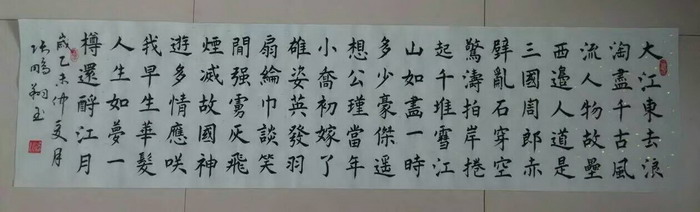 大江東去浪
淘盡千古風
流人物故壘
西邊人道是
三國周郎赤
壁亂石穿空
驚濤拍岸捲
起千堆雪江
山如畫一時
多少豪傑遥
想公瑾當年
小喬初嫁了
雄姿英發羽
扇綸巾談笑
間强虜灰飛
煙滅故國神
遊多情應咲
我早生華髮
人生如夢一
樽還酹江月
歲乙未仲夏月
张鵬翔